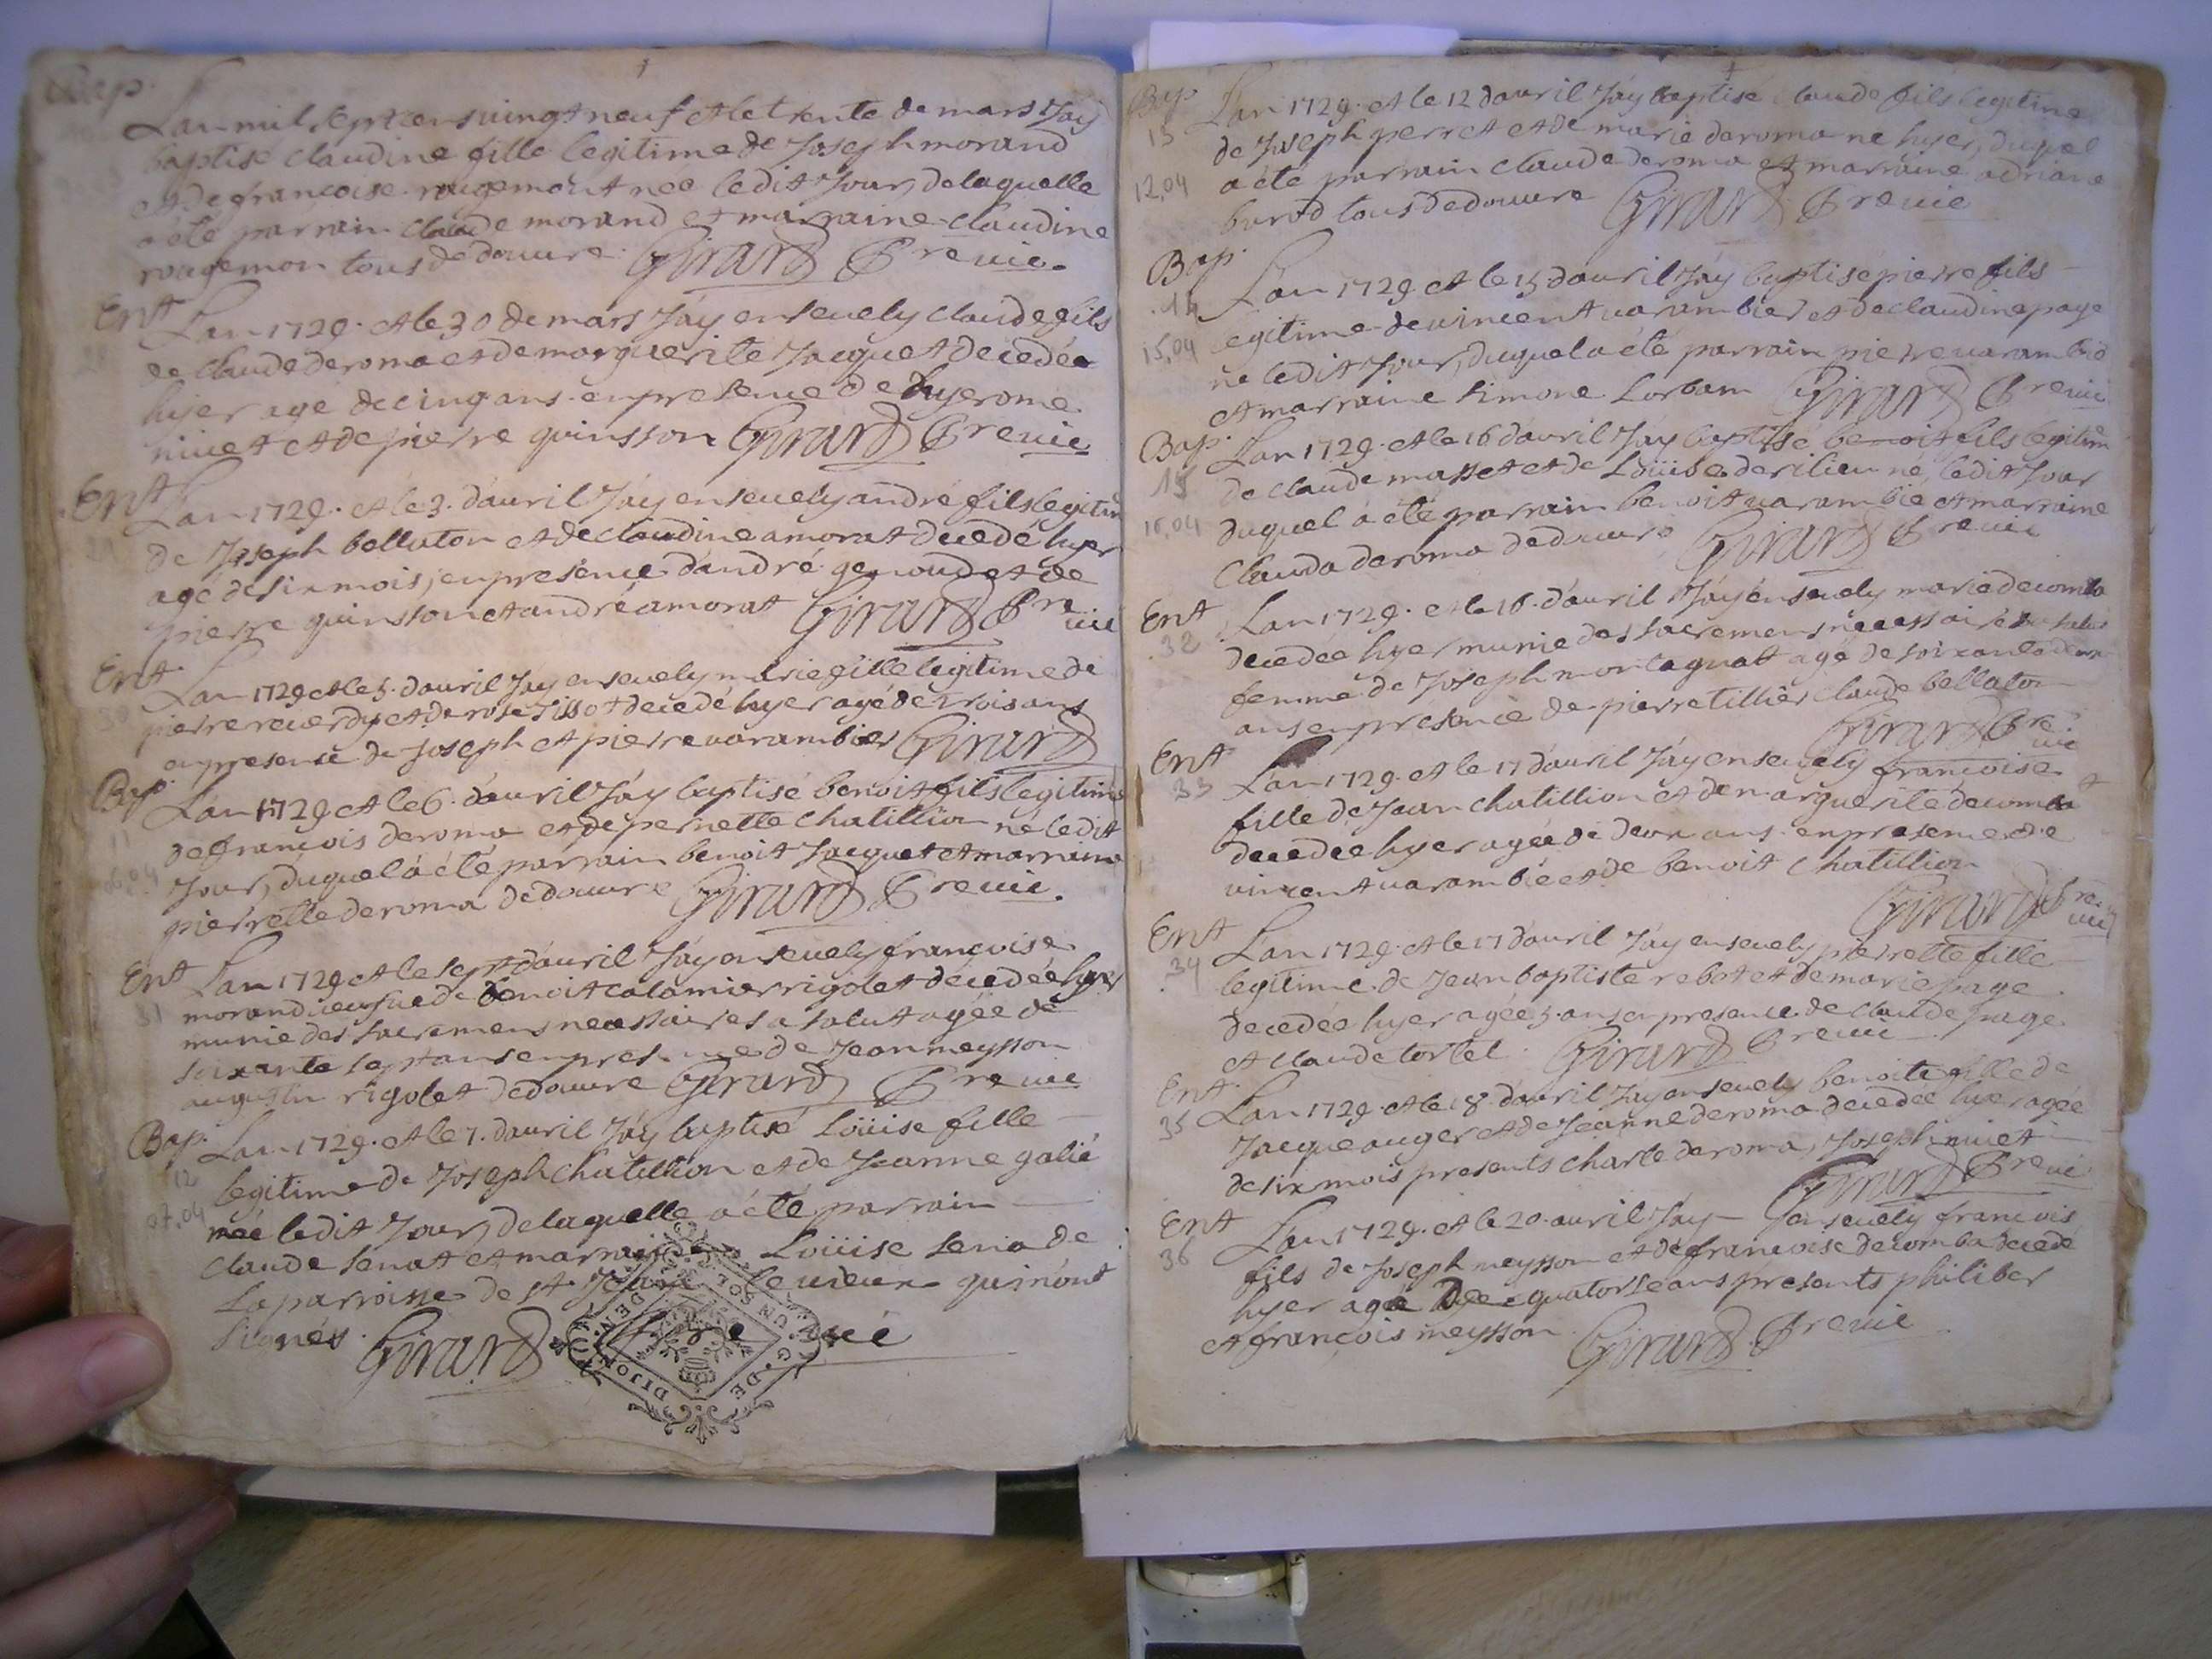 Bap.
Lan mil sept cens vingt neuf et le trente de mars Jáy
baptisé claudine fille legitime de Joseph morand
et de francoise rougemont née ledit Jour, de laquelle
a été parrain claude morand et marraine claudine
rougemon tous de douvre Girard Pre vic.
Ent
Lan 1729. et le 30 de mars Jáy ensevely claude fils
de claude deroma et de marguerite Jacquet decedée
hyer age de cinq ans en presence de hyerome
nivet et de pierre quinsson Girard Pre vic
Ent
Lan 1729. et le 3. dávril Jáy ensevely andré fils legitim
de Joseph bellaton et de claudine amorat decedé hyer
agé de six mois, en presence dándré genoud et de
pierre quinsson et andré amorat Girard Pre
vic
Ent
Lan 1729 et le 5. dávril Jay ensevely marie fille legitime de
pierre reverdy et de rose tissot decedé hyer agé de trois ans
en presence de Joseph et pierre varambier Girard
Bap.
11
06.04
Lan 1729 et le 6. dávril Jáy baptisé benoit fils legitime
de francois deroma et de pernette chatillion né ledit
Jour, duquel a été parrain benoit Jacquet et marraine
pierrette deroma de douvre Girard Pre vic.
Ent
31
Lan 1729 et le sept dávril Jáy ensevely francoise
morand veufue de benoit calamier rigolet decedée hyer
munie des sacremens necessaires a salut agée de
soixante sept ans en presence de Jean meysson
augustin rigolet de douvre Girard Pre vic
Bap.
12
07.04
Lan 1729. et le 7. dávril Jáy baptisé Loüise fille
legitime de Joseph chatillion et de Jeanne galié
née ledit Jour, de laquelle a été parrain
claude senat et marraine Loüise sena de
La parroisse de st. Jean le vieux qui nónt
signés. Girard Pre vic
G. DE DIJON
Bap
13
12.04
Lan 1729. et le 12 dávril Jáy baptisé claude fils legitime
de Joseph perret et de marie deroma ne hyer, duquel
a été parrain claude deroma et marraine adriane
burod tous de douvre Girard Pre vic
Bap.
.14
15.04
Lan 1729 et le 15 dávril Jáy baptisé pierre fils
legitime de vincent varambier et de claudine page
né ledit Jour, duquel a été parrain pierre varambié
et marraine simone Lorbam Girard Pre vic
Bap.
15
16.04
Lan 1729. et le 16 dávril Jáy baptisé benoit fils legitim
de claude masset et de Loüise derilieu né ledit Jour
duquel a été parrain benoit varambié et marraine
Clauda deroma de douvre Girard Pre vic
Ent
.32
Lan 1729. et le 16. dávril Jáy ensevely marie decomba
decedée hyer munie des sacremens necessaire au salut
femme de Joseph montagnat age de soixante deux
ans en présence de pierre tillier claude bellaton
Girard Pre
vic
Ent
33
Lan 1729. et le 17 dávril Jáy ensevely francoise
fille de Jean chatillion et de marguerite decomba
decedée hyer agée de deux ans en presence de
vincent varambié et de benoit chatillion
Girard Pre
vic
Ent
.34
Lan 1729. et le 17 dávril Jáy ensevely pierrette fille
legitime de Jean baptiste rebot et de marie page
decedée hyer agée 5. ans en presence de claude page
et claude tortel Girard Pre vic
Ent.
35
Lan 1729. et le 18. dávril Jáy ensevely benoite fille de
Jacque auger et de Jeanne deroma decedée hyer agée
de six mois presents charle deroma, Joseph nivet
Girard Pre vic
Ent
36
Lan 1729. et le 20. avril Jáy ensevely francois
fils de Joseph meysson et de francoise decomba decedé
hyer agé de quatorse ans presents philiber
et francois meysson Girard Pre vic